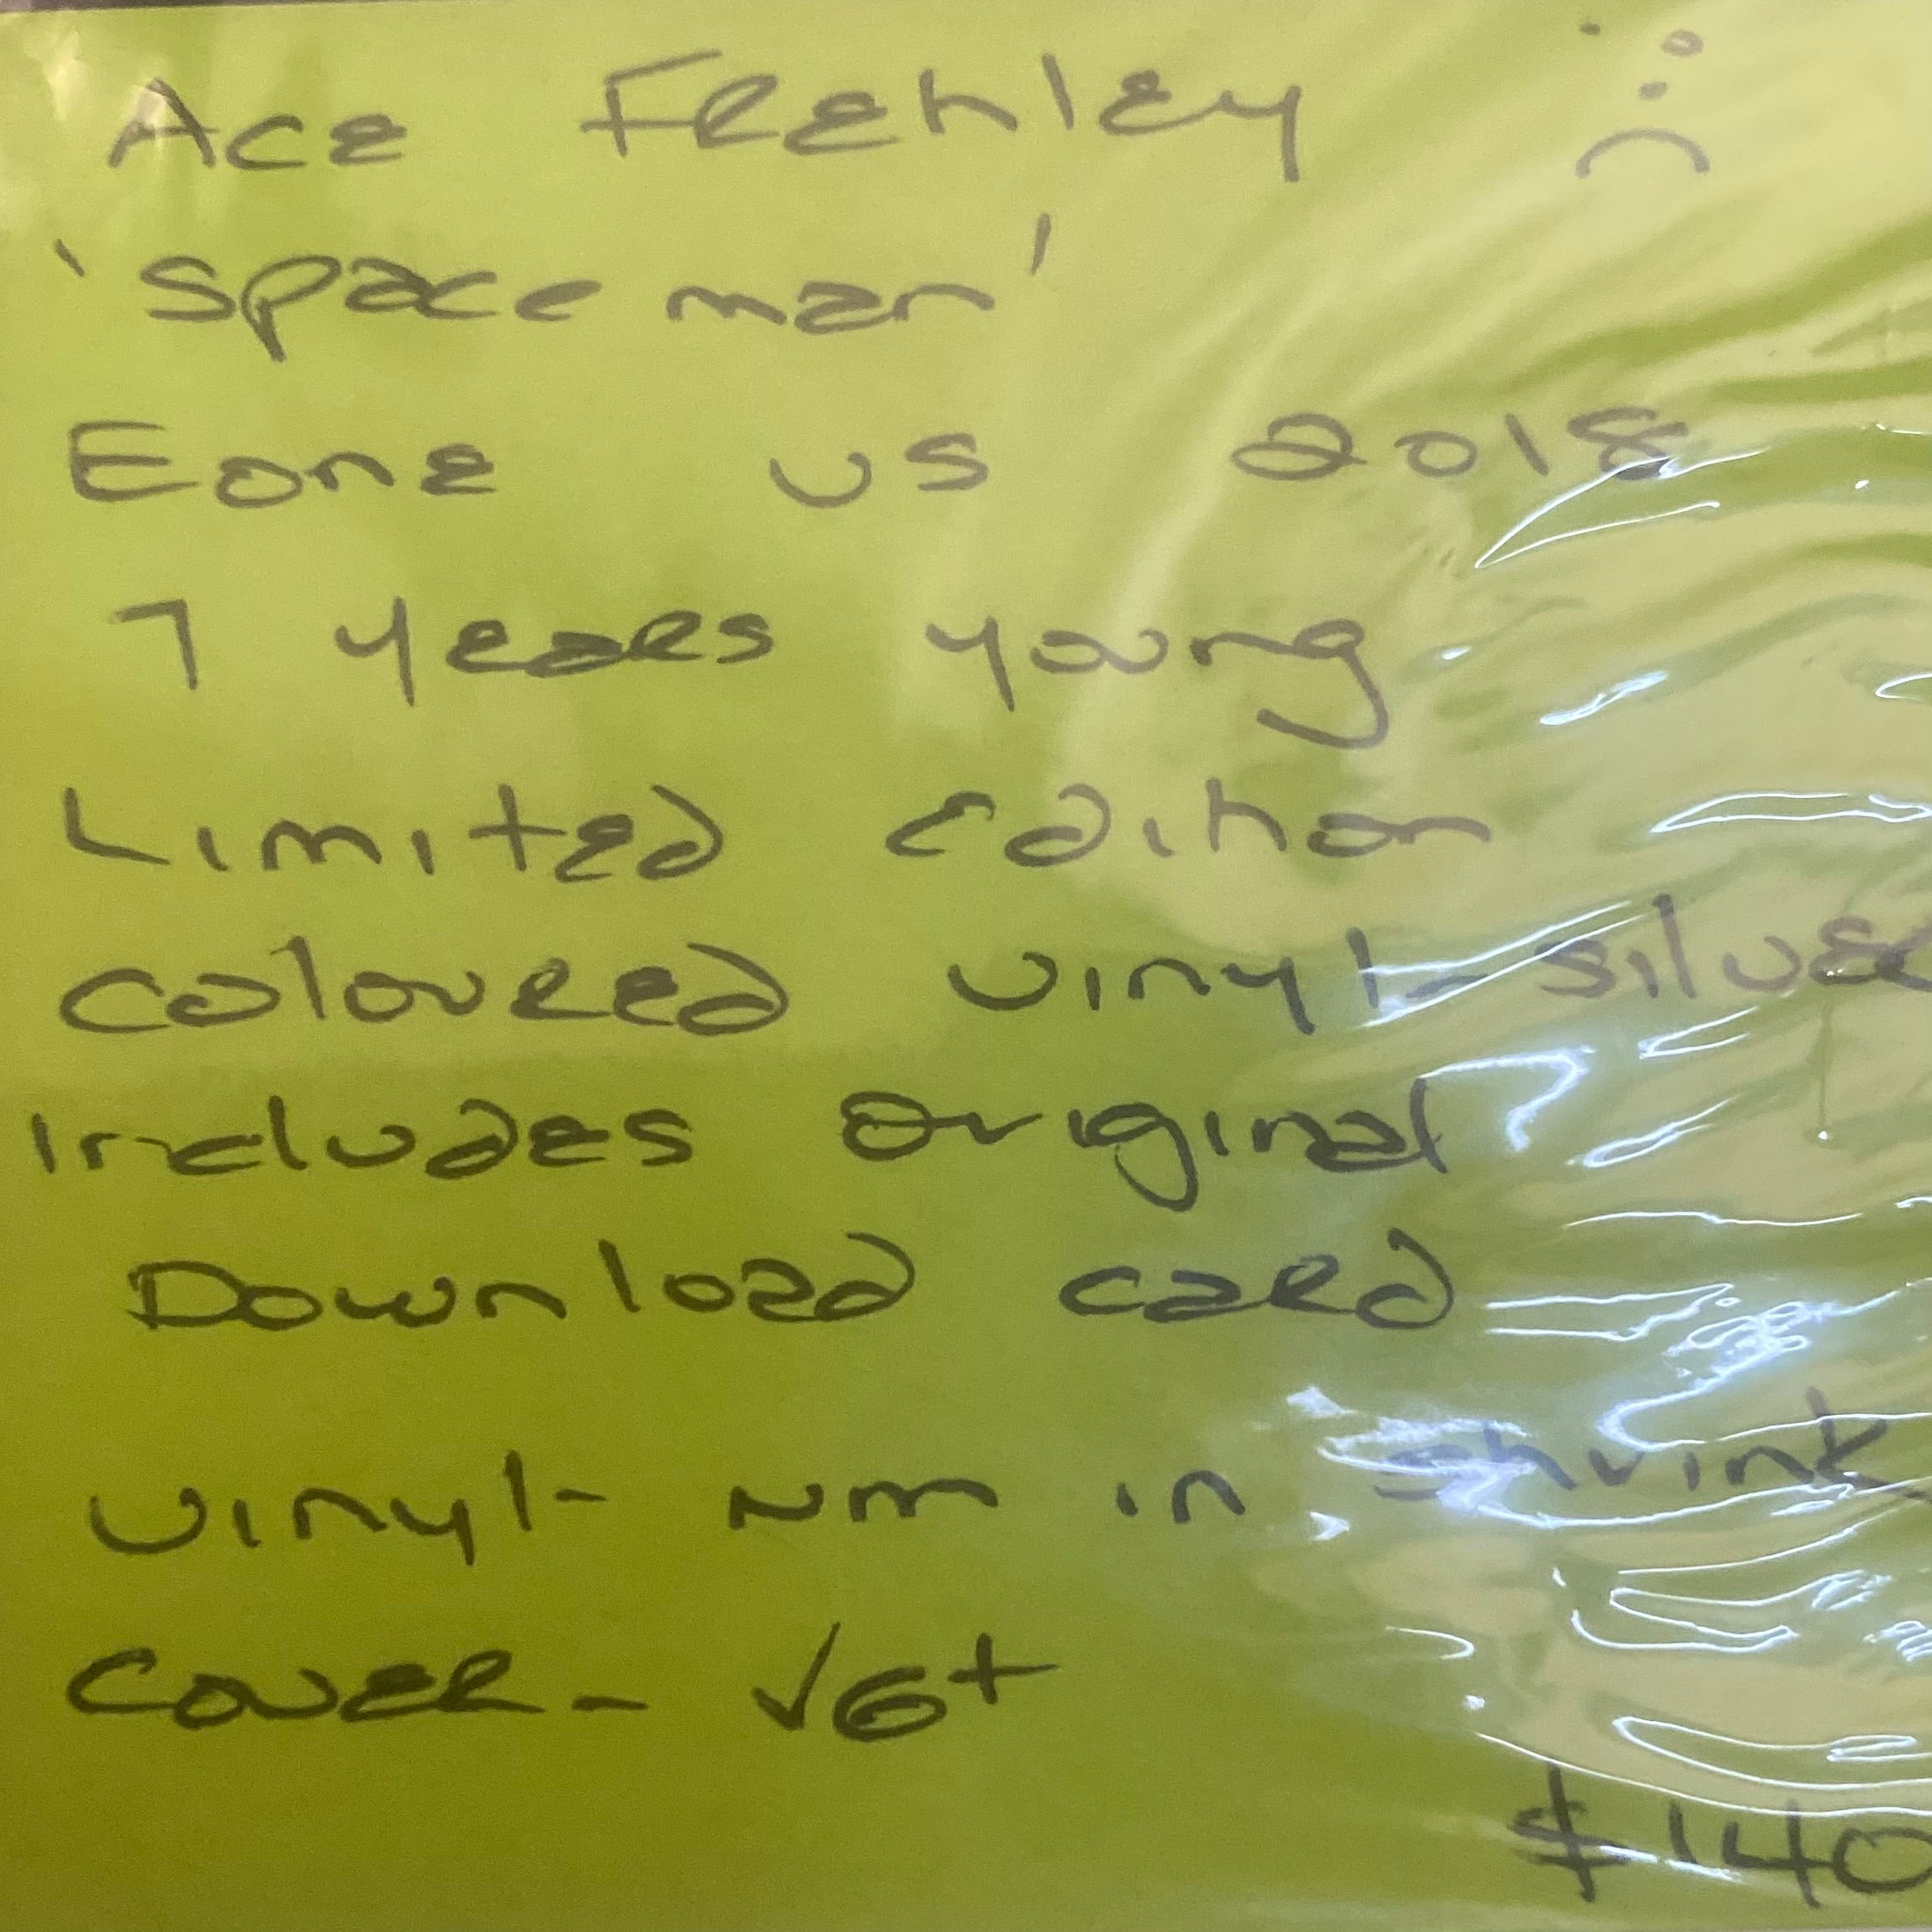 Ace Frehley :(
'Spaceman'
Eone US 2018
7 years young
Limited edition
coloured vinyl - silver
Includes original
Download card
Vinyl - NM in shrink
Cover - VG+
$140